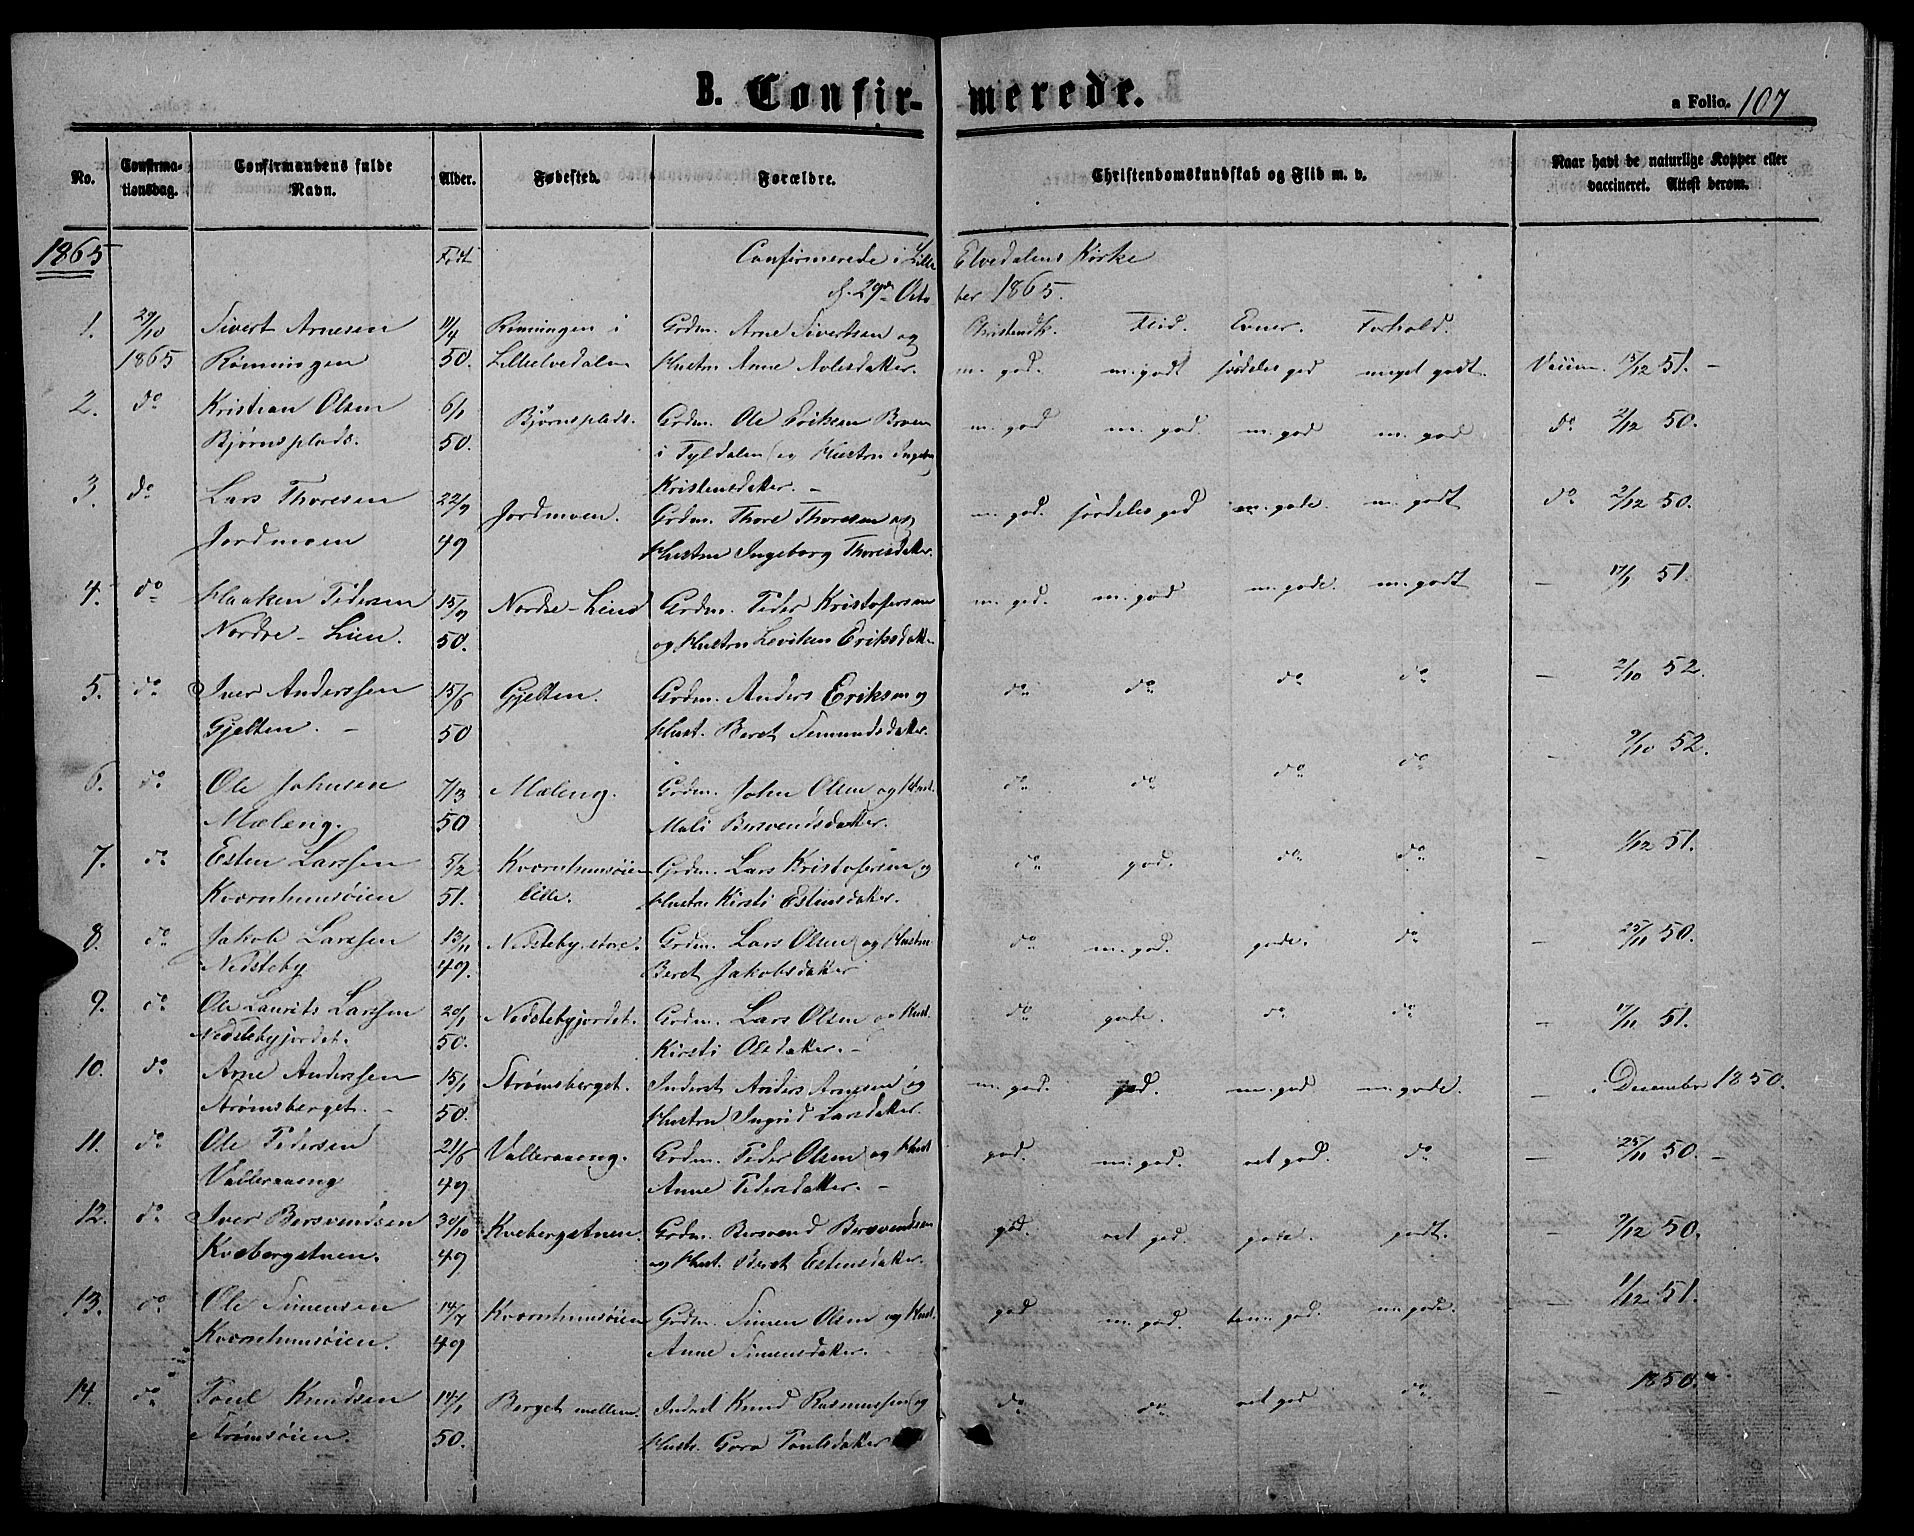 B. Confir- merede.
a Folio. 107
No. Confirma-tionsdag. Confirmandens fulde Navn. Alder. Fødested. Forældre. Christendomskundskab og Flid m. v. Naar havt de naturlige Kopper eller vaccineret. Attest derom.
1865 Født Confirmerede i Lille Elvedalens Kirke
d. 29de Octo ber 1865.
1. 29/10 Sivert Arnesen 11/4 Rønningen i Grdm. Arne Sivertsen og Christendk. Flid. Evner. Forhold.
1865 Rønningen 50. Lilleelvedalen Hustru Anne Nolesdatter. m. god. m. godt særdeles god meget godt. Vaccin. 15/12 51. –
2. do Kristian Olsen 6/1 Bjørnsplads. Grdm. Ole Eriksen Broen m. god m. god. m. god m. god do 2/12 50.
Bjørnsplads. 50. i Tyldalen og Hustru Ingebor
Kristensdatter. –
3. do Lars Thoresen 22/9 Jordmoen. Grdm. Thore Thoresen og m. god. særdeles god m. gode. m. godt do 2/12 50.
Jordmoen 49 Hustru Ingeborg Thoresdatter.
4. do Haaken Pedersen 15/9 Nordre-Lien Grdm. Peder Kristofersen m. god. m. god m. gode. m. godt – 17/1 51.
Nordre-Lien. 50. og Hustru Leviken Eriksdatter
5. do Iver Anderssen 15/6 Gjelten. Grdm. Anders Eriksen og do do do do – 2/10 52.
Gjelten. – 50 Hust. Beret Simundsdatter.
6. do Ole Johnsen 7/3 Mæleng. Grdm. John Olsen og Hust. do do do do – 9/10 52.
Mæleng. 50 Mali Bersvendsdatter.
7. do Esten Larssen 5/2 Kværnhusøien Grdm. Lars Kristofersen og do god. do do – 1/12 51.
Kværnhusøien 51. lille. Hustru Kirsti Estensdatter.
8. do Jakob Larssen 13/11 Nedsteby store. Grdm. Lars Olsen og Hustru do m. god. gode. do – 25/11 50.
Nedsteby 49. Beret Jakobsdatter
9. do Ole Laurits Larssen 20/1 Nedstebyjordet. Grdm. Lars Olsen og Hust. do gode. do do – 17/11 51.
Nedstebyjordet. 50. Kirsti Olsdatter. –
10. do Arne Anderssen 15/1 Strømsberget. Inderst Anders Arnesen og m. god. god. m. god m. gode. – December 1850.
Strømsberget. – 50. Hustru Ingrid Larsdatter.
11. do Ole Pedersen 21/6 Valleraaeng. Grdm. Peder Olsen og Hust god. m. god. ret god. do – 25/11 50. –
Valleraaeng 49 Anne Pedersdatter. –
12. do Iver Bersvendsen 30/10 Kvebergstuen. Grdm. Bersvend Bersvendsen god. ret god. gode. godt. – 9/12 50.
Kvebergstuen. 49 og Hust. Beret Estensdatter.
13. do Ole Simensen 14/7 Kværnhusøien Grdm. Simen Olsen og Hust. god m. god. god. m. gode. – 1/12 51.
Kværnhusøien. 49 Anne Simensdatter. –
14. do Poul Knudsen 14/1 Berget mellem. Inderst Knud Rasmussen og do do ret god do – 1850.
Strømsøien. 50. Hustr. Goro Poulsdatter